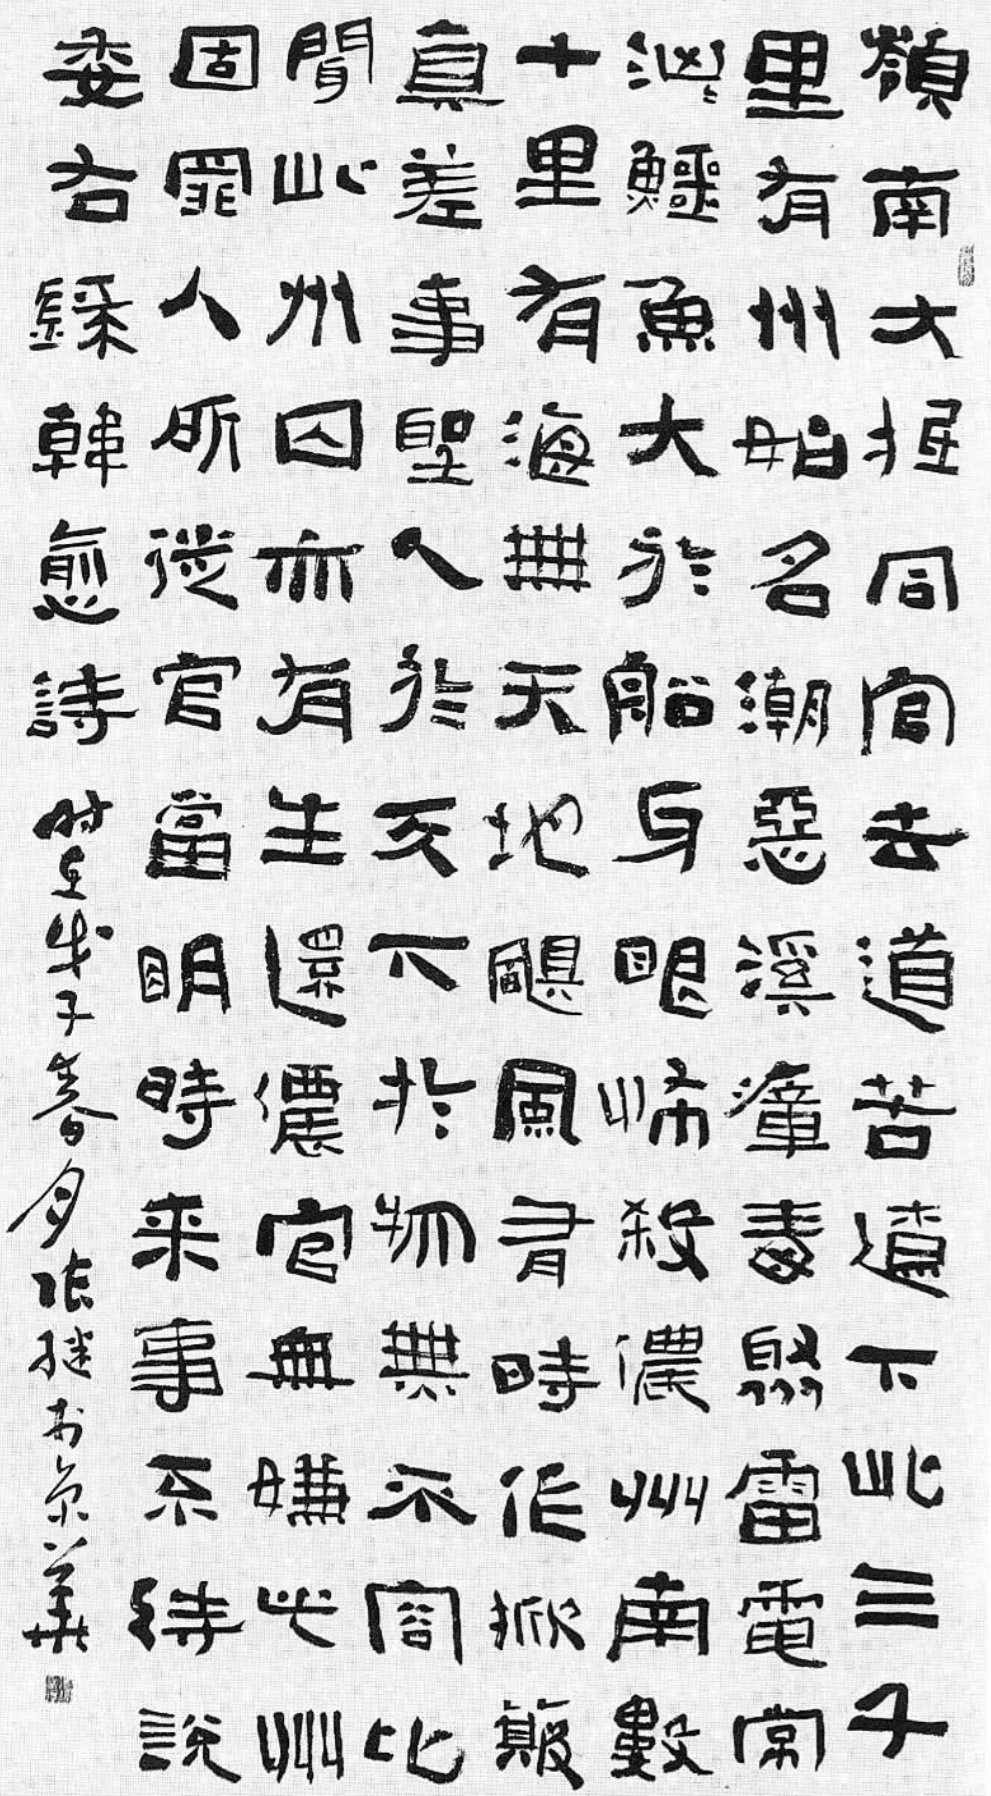 嶺南大抵同官去道苦遼下此三千
里有州始名潮惡溪瘴毒聚雷電常
洶〻鱷魚大於船牙眼怖殺儂州南數
十里有海無天地颶風有時作掀簸
真差事聖人於天下於物無不容比
聞此州囚亦有生還儂官無嫌此州
固罪人所徙官當明時来事不待說
委右錄韓愈詩時在戊子春月張繼於京華